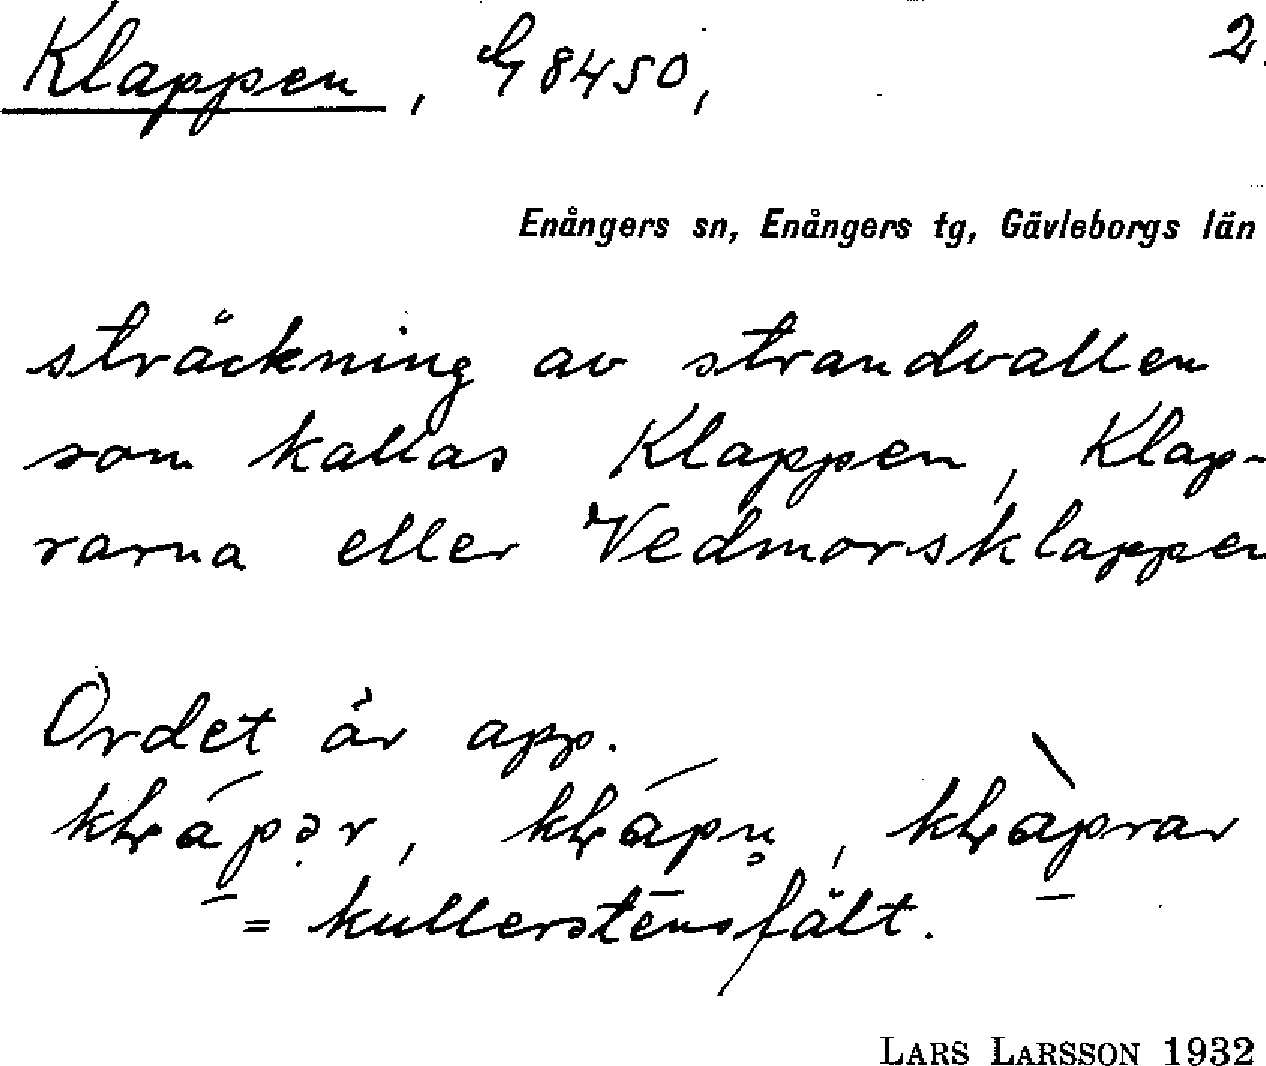 Klappen, G 8450, 2.
Enångers sn, Enångers tg, Gävleborgs län
sträckning av strandvallen
som kallas Klappen, Klap-
rarna eller Vedmorsklappen
Ordet är app.
= kullerstensfält.
LARS LARSSON 1932